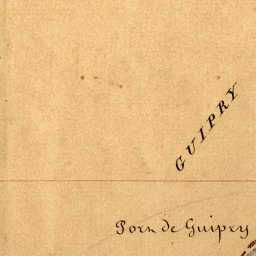 GUIPRY
Port de Guipry